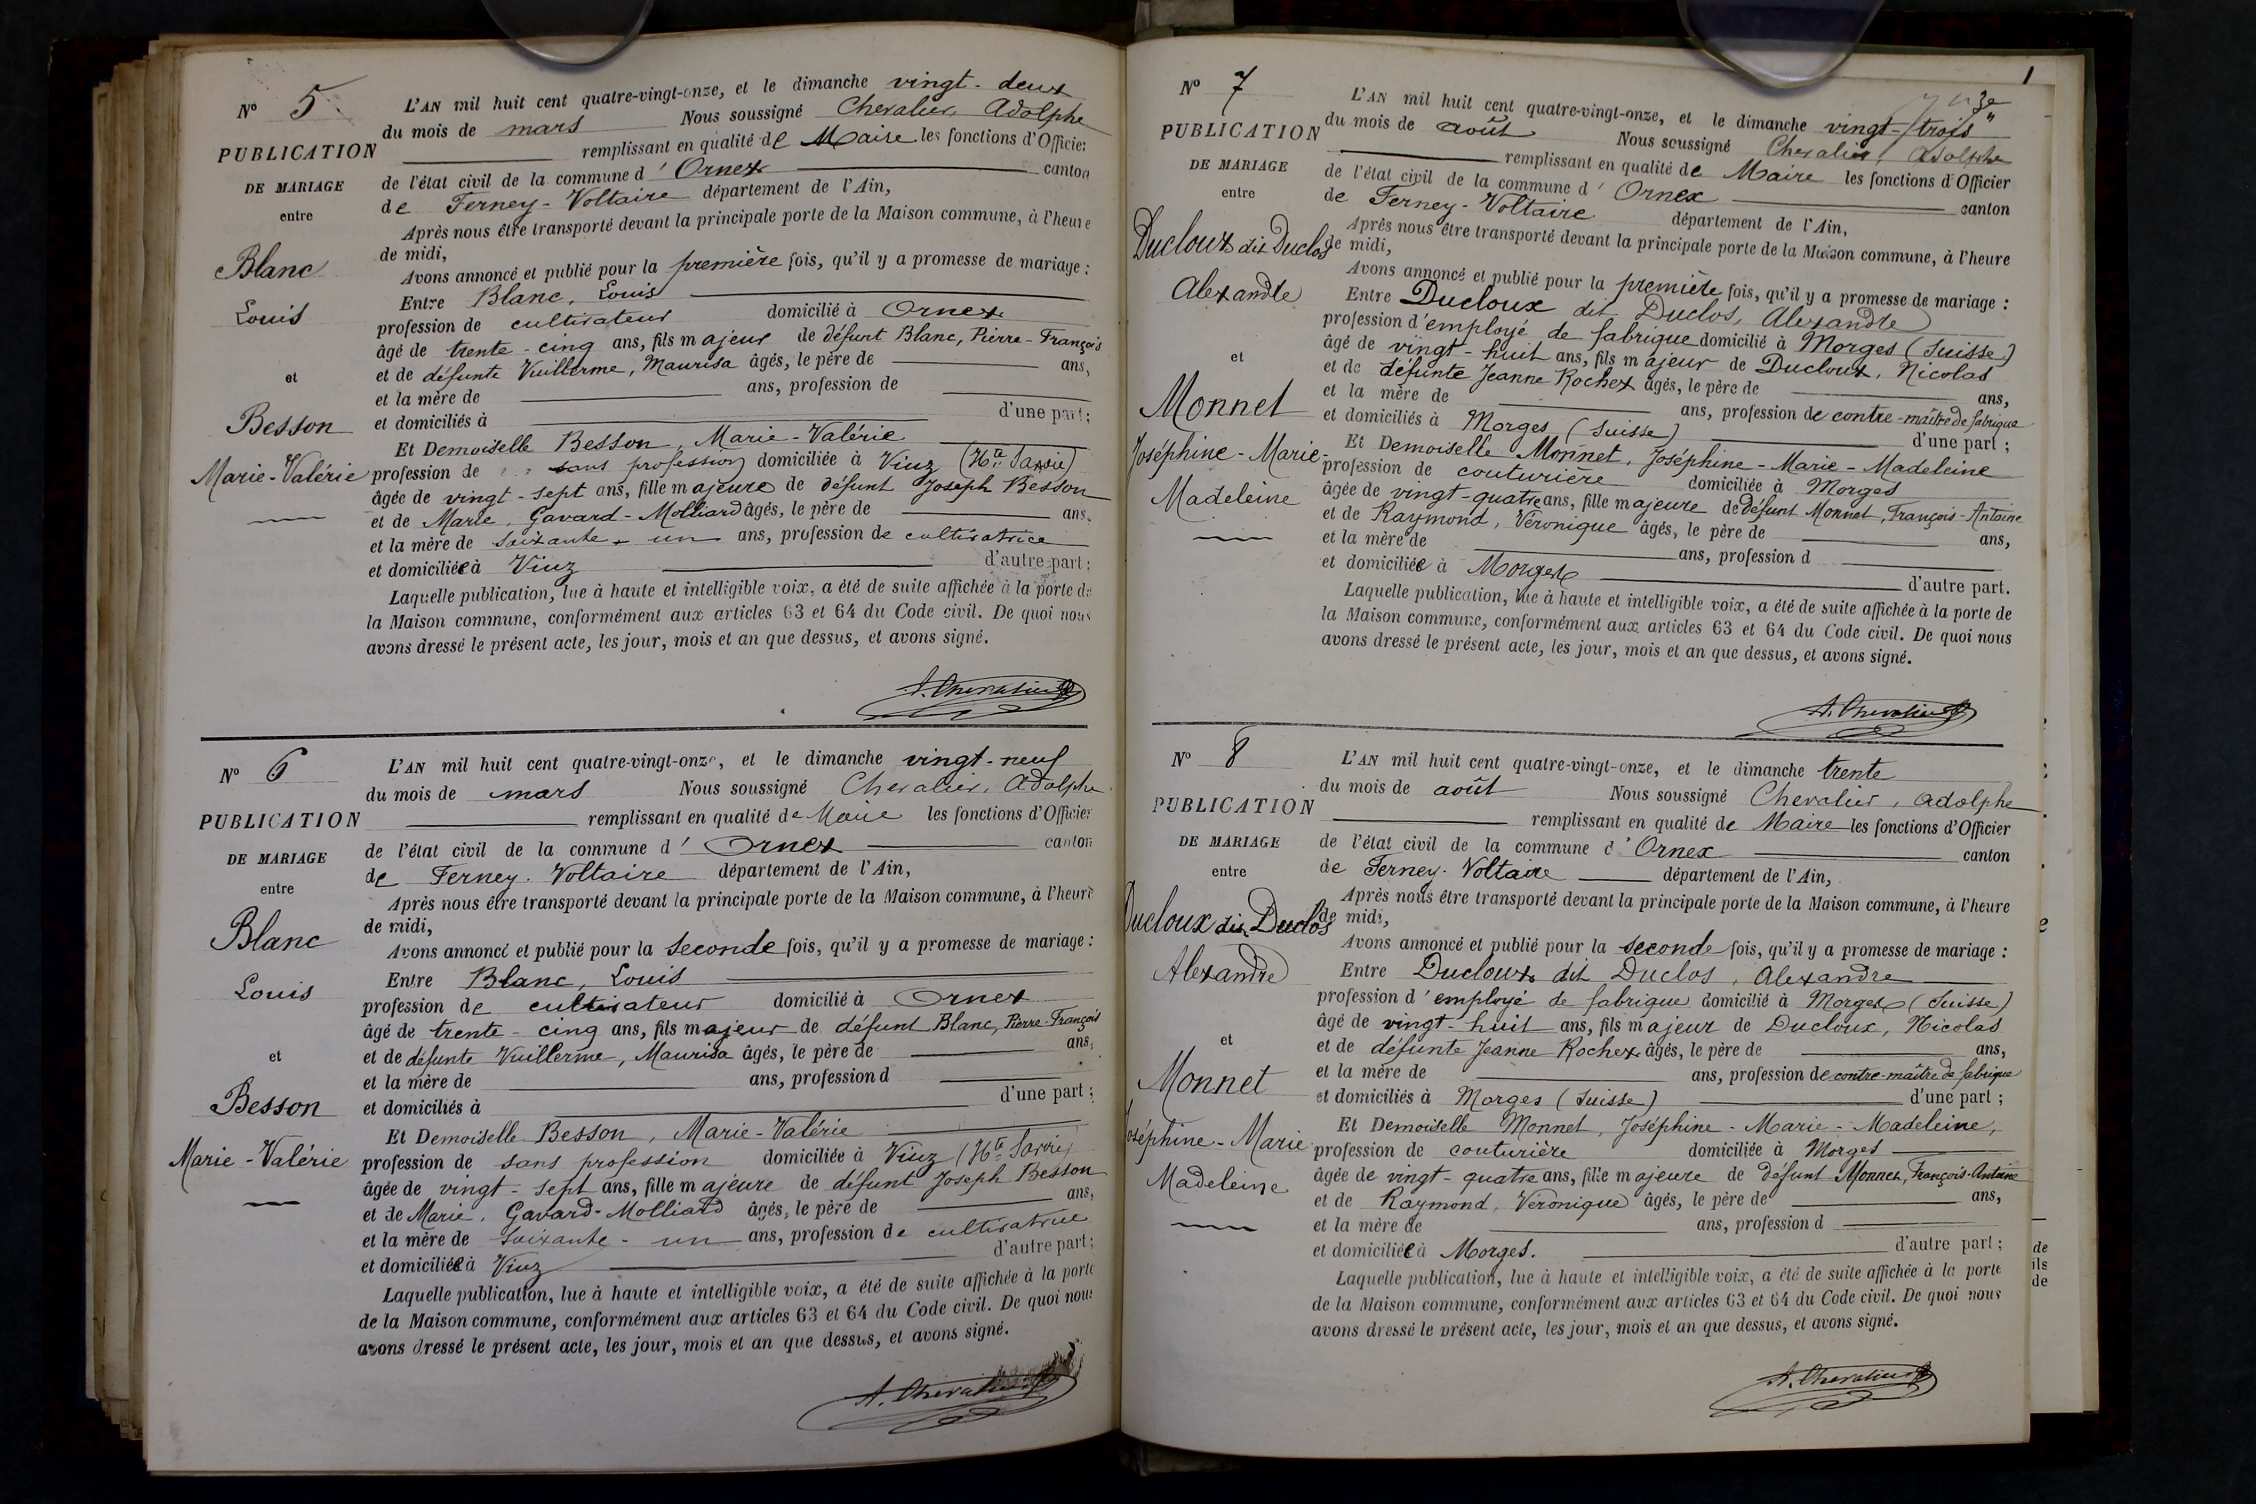 Nº 5
PUBLICATION
DE MARIAGE
entre
Blanc
Louis
et
Besson
Marie-Valérie
L'AN mil huit cent quatre-vingt-onze, et le dimanche vingt-deux
du mois de mars Nous soussigné Chevalier, Adolphe
remplissant en qualité de Maire les fonctions d'Officier
de l'état civil de la commune d'Ornex canton
de Ferney-Voltaire département de l'Ain,
Après nous être transporté devant la principale porte de la Maison commune, à l'heure
de midi,
Avons annoncé et publié pour la première fois, qu'il y a promesse de mariage :
Entre Blanc, Louis
profession de cultivateur domicilié à Ornex
âgé de trente-cinq ans, fils majeur de défunt Blanc, Pierre-François
et de défunte Vuillerme, Maurisa âgés, le père de ans,
et la mère de ans, profession de
et domiciliés à d'une part;
Et Demoiselle Besson, Marie-Valérie
profession de sans profession domiciliée à Viuz (Hte Savoie)
âgée de vingt-sept ans, fille majeure de défunt Joseph Besson
et de Marie, Gavard-Molliard âgés, le père de ans,
et la mère de soixante-un ans, profession de cultivatrice
et domiciliée à Viuz d'autre part;
Laquelle publication, lue à haute et intelligible voix, a été de suite affichée à la porte de
la Maison commune, conformément aux articles 63 et 64 du Code civil. De quoi nous
avons dressé le présent acte, les jour, mois et an que dessus, et avons signé.
A. Chevalier
Nº 6
PUBLICATION
DE MARIAGE
entre
Blanc
Louis
et
Besson
Marie-Valérie
L'AN mil huit cent quatre-vingt-onze, et le dimanche vingt-neuf
du mois de mars Nous soussigné Chevalier, Adolphe
remplissant en qualité de Maire les fonctions d'Officier
de l'état civil de la commune d'Ornex canton
de Ferney-Voltaire département de l'Ain,
Après nous être transporté devant la principale porte de la Maison commune, à l'heure
de midi,
Avons annoncé et publié pour la seconde fois, qu'il y a promesse de mariage :
Entre Blanc, Louis
profession de cultivateur domicilié à Ornex
âgé de trente-cinq ans, fils majeur de défunt Blanc, Pierre-François
et de défunte Vuillerme, Maurisa âgés, le père de ans,
et la mère de ans, profession d
et domiciliés à d'une part;
Et Demoiselle Besson, Marie-Valérie
profession de sans profession domiciliée à Viuz (Hte Savoie)
âgée de vingt-sept ans, fille majeure de défunt Joseph Besson
et de Marie, Gavard-Molliard âgés, le père de ans,
et la mère de soixante-un ans, profession de cultivatrice
et domiciliée à Viuz d'autre part;
Laquelle publication, lue à haute et intelligible voix, a été de suite affichée à la porte
de la Maison commune, conformément aux articles 63 et 64 du Code civil. De quoi nous
avons dressé le présent acte, les jour, mois et an que dessus, et avons signé.
A. Chevalier
Nº 7
PUBLICATION
DE MARIAGE
entre
Ducloux dit Duclos
Alexandre
et
Monnet
Joséphine-Marie-
Madeleine
L'AN mil huit cent quatre-vingt-onze, et le dimanche vingt-trois
du mois de août Nous soussigné Chevalier, Adolphe
remplissant en qualité de Maire les fonctions d'Officier
de l'état civil de la commune d'Ornex canton
de Ferney-Voltaire département de l'Ain,
Après nous être transporté devant la principale porte de la Maison commune, à l'heure
de midi,
Avons annoncé et publié pour la première fois, qu'il y a promesse de mariage :
Entre Ducloux dit Duclos, Alexandre
profession d'employé de fabrique domicilié à Morges (Suisse)
âgé de vingt-huit ans, fils majeur de Ducloux, Nicolas
et de défunte Jeanne Rochex âgés, le père de ans,
et la mère de ans, profession de contre-maître de fabrique
et domiciliés à Morges (Suisse) d'une part;
Et Demoiselle Monnet, Joséphine-Marie-Madeleine
profession de couturière domiciliée à Morges
âgée de vingt-quatre ans, fille majeure de défunt Monnet, François-Antoine
et de Raymond, Véronique âgés, le père de ans,
et la mère de ans, profession d
et domiciliée à Morges d'autre part.
Laquelle publication, lue à haute et intelligible voix, a été de suite affichée à la porte de
la Maison commune, conformément aux articles 63 et 64 du Code civil. De quoi nous
avons dressé le présent acte, les jour, mois et an que dessus, et avons signé.
A. Chevalier
Nº 8
PUBLICATION
DE MARIAGE
entre
Ducloux dit Duclos
Alexandre
et
Monnet
Joséphine-Marie
Madeleine
L'AN mil huit cent quatre-vingt-onze, et le dimanche trente
du mois de août Nous soussigné Chevalier, Adolphe
remplissant en qualité de Maire les fonctions d'Officier
de l'état civil de la commune d'Ornex canton
de Ferney-Voltaire département de l'Ain,
Après nous être transporté devant la principale porte de la Maison commune, à l'heure
de midi,
Avons annoncé et publié pour la seconde fois, qu'il y a promesse de mariage :
Entre Ducloux dit Duclos, Alexandre
profession d'employé de fabrique domicilié à Morges (Suisse)
âgé de vingt-huit ans, fils majeur de Ducloux, Nicolas
et de défunte Jeanne Rochex âgés, le père de ans,
et la mère de ans, profession de contre-maître de fabrique
et domiciliés à Morges (Suisse) d'une part;
Et Demoiselle Monnet, Joséphine-Marie-Madeleine,
profession de couturière domiciliée à Morges
âgée de vingt-quatre ans, fille majeure de défunt Monnet, François-Antoine
et de Raymond, Véronique âgés, le père de ans,
et la mère de ans, profession d
et domiciliée à Morges. d'autre part;
Laquelle publication, lue à haute et intelligible voix, a été de suite affichée à la porte
de la Maison commune, conformément aux articles 63 et 64 du Code civil. De quoi nous
avons dressé le présent acte, les jour, mois et an que dessus, et avons signé.
A. Chevalier